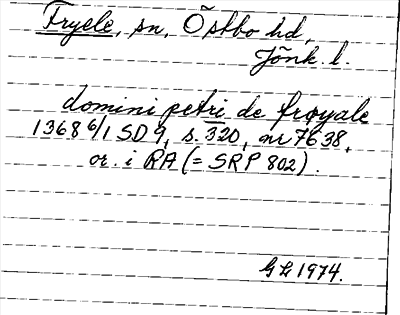 Fryele, sn, Östbo hd,
Jönk. l.
domini petri de frøyale
1368 6/1 SD 9, s. 320, nr 7638,
or. i RA (= SRP 802).
GL 1974.